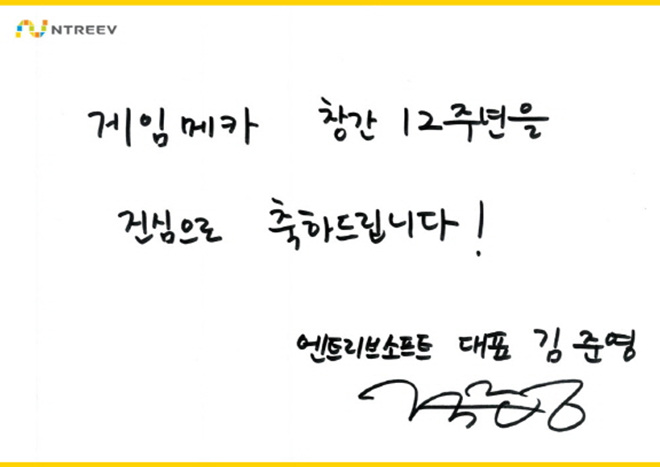 NTREEV
게임메카 창간 12주년을
진심으로 축하드립니다!
엔트리브소프트 대표 김준영